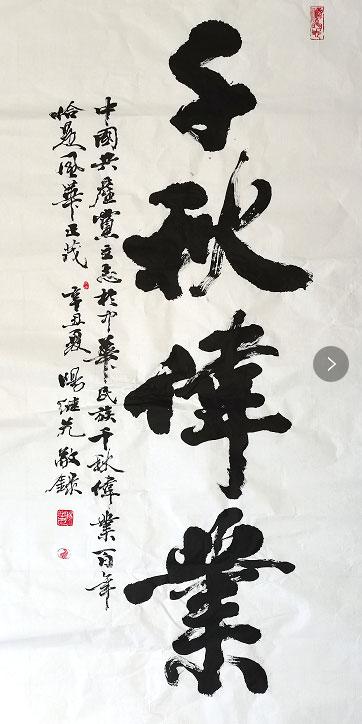 千秋偉業
中國共產黨立志於中華民族千秋偉業百年
恰是風華正茂 辛丑夏 陽继光 敬錄